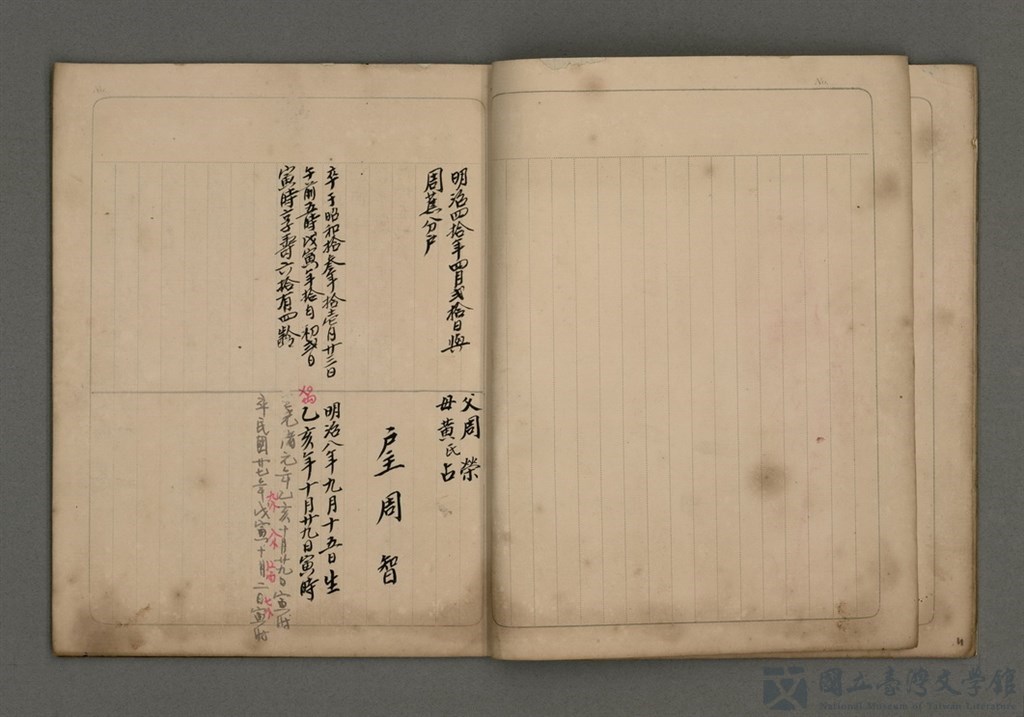 明治四拾年四月貳拾日與
周蕉分戶
卒于昭和拾叄年拾壱月廿三日
午前五時戊寅年拾月初貳日
寅時享壽六拾有四齡
父周榮
母黃氏占
戶主周智
明治八年九月十五日生
乙亥年十月廿九日寅時
光清元年乙亥十月廿九日寅時
卒民國廿七年戊寅十月二日寅時
國立臺灣文學館
National Museum of Taiwan Literature